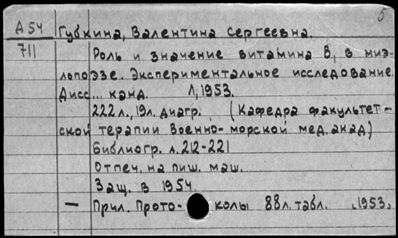 5
А 54 Губкина, Валентина Сергеевна.
711 Роль и значение витамина В, в миэ-
лопоэзе. Экспериментальное исследование.
Дисс... канд. Л, 1953.
222 л., 19 л. диагр. (Кафедра факультет-
ской терапии Военно-морской мед. акад)
Библиогр. л. 212-221
Отпеч. на пиш. маш.
Защ. в 1954.
— Прил. Прото-колы 88 л. табл. 1953.